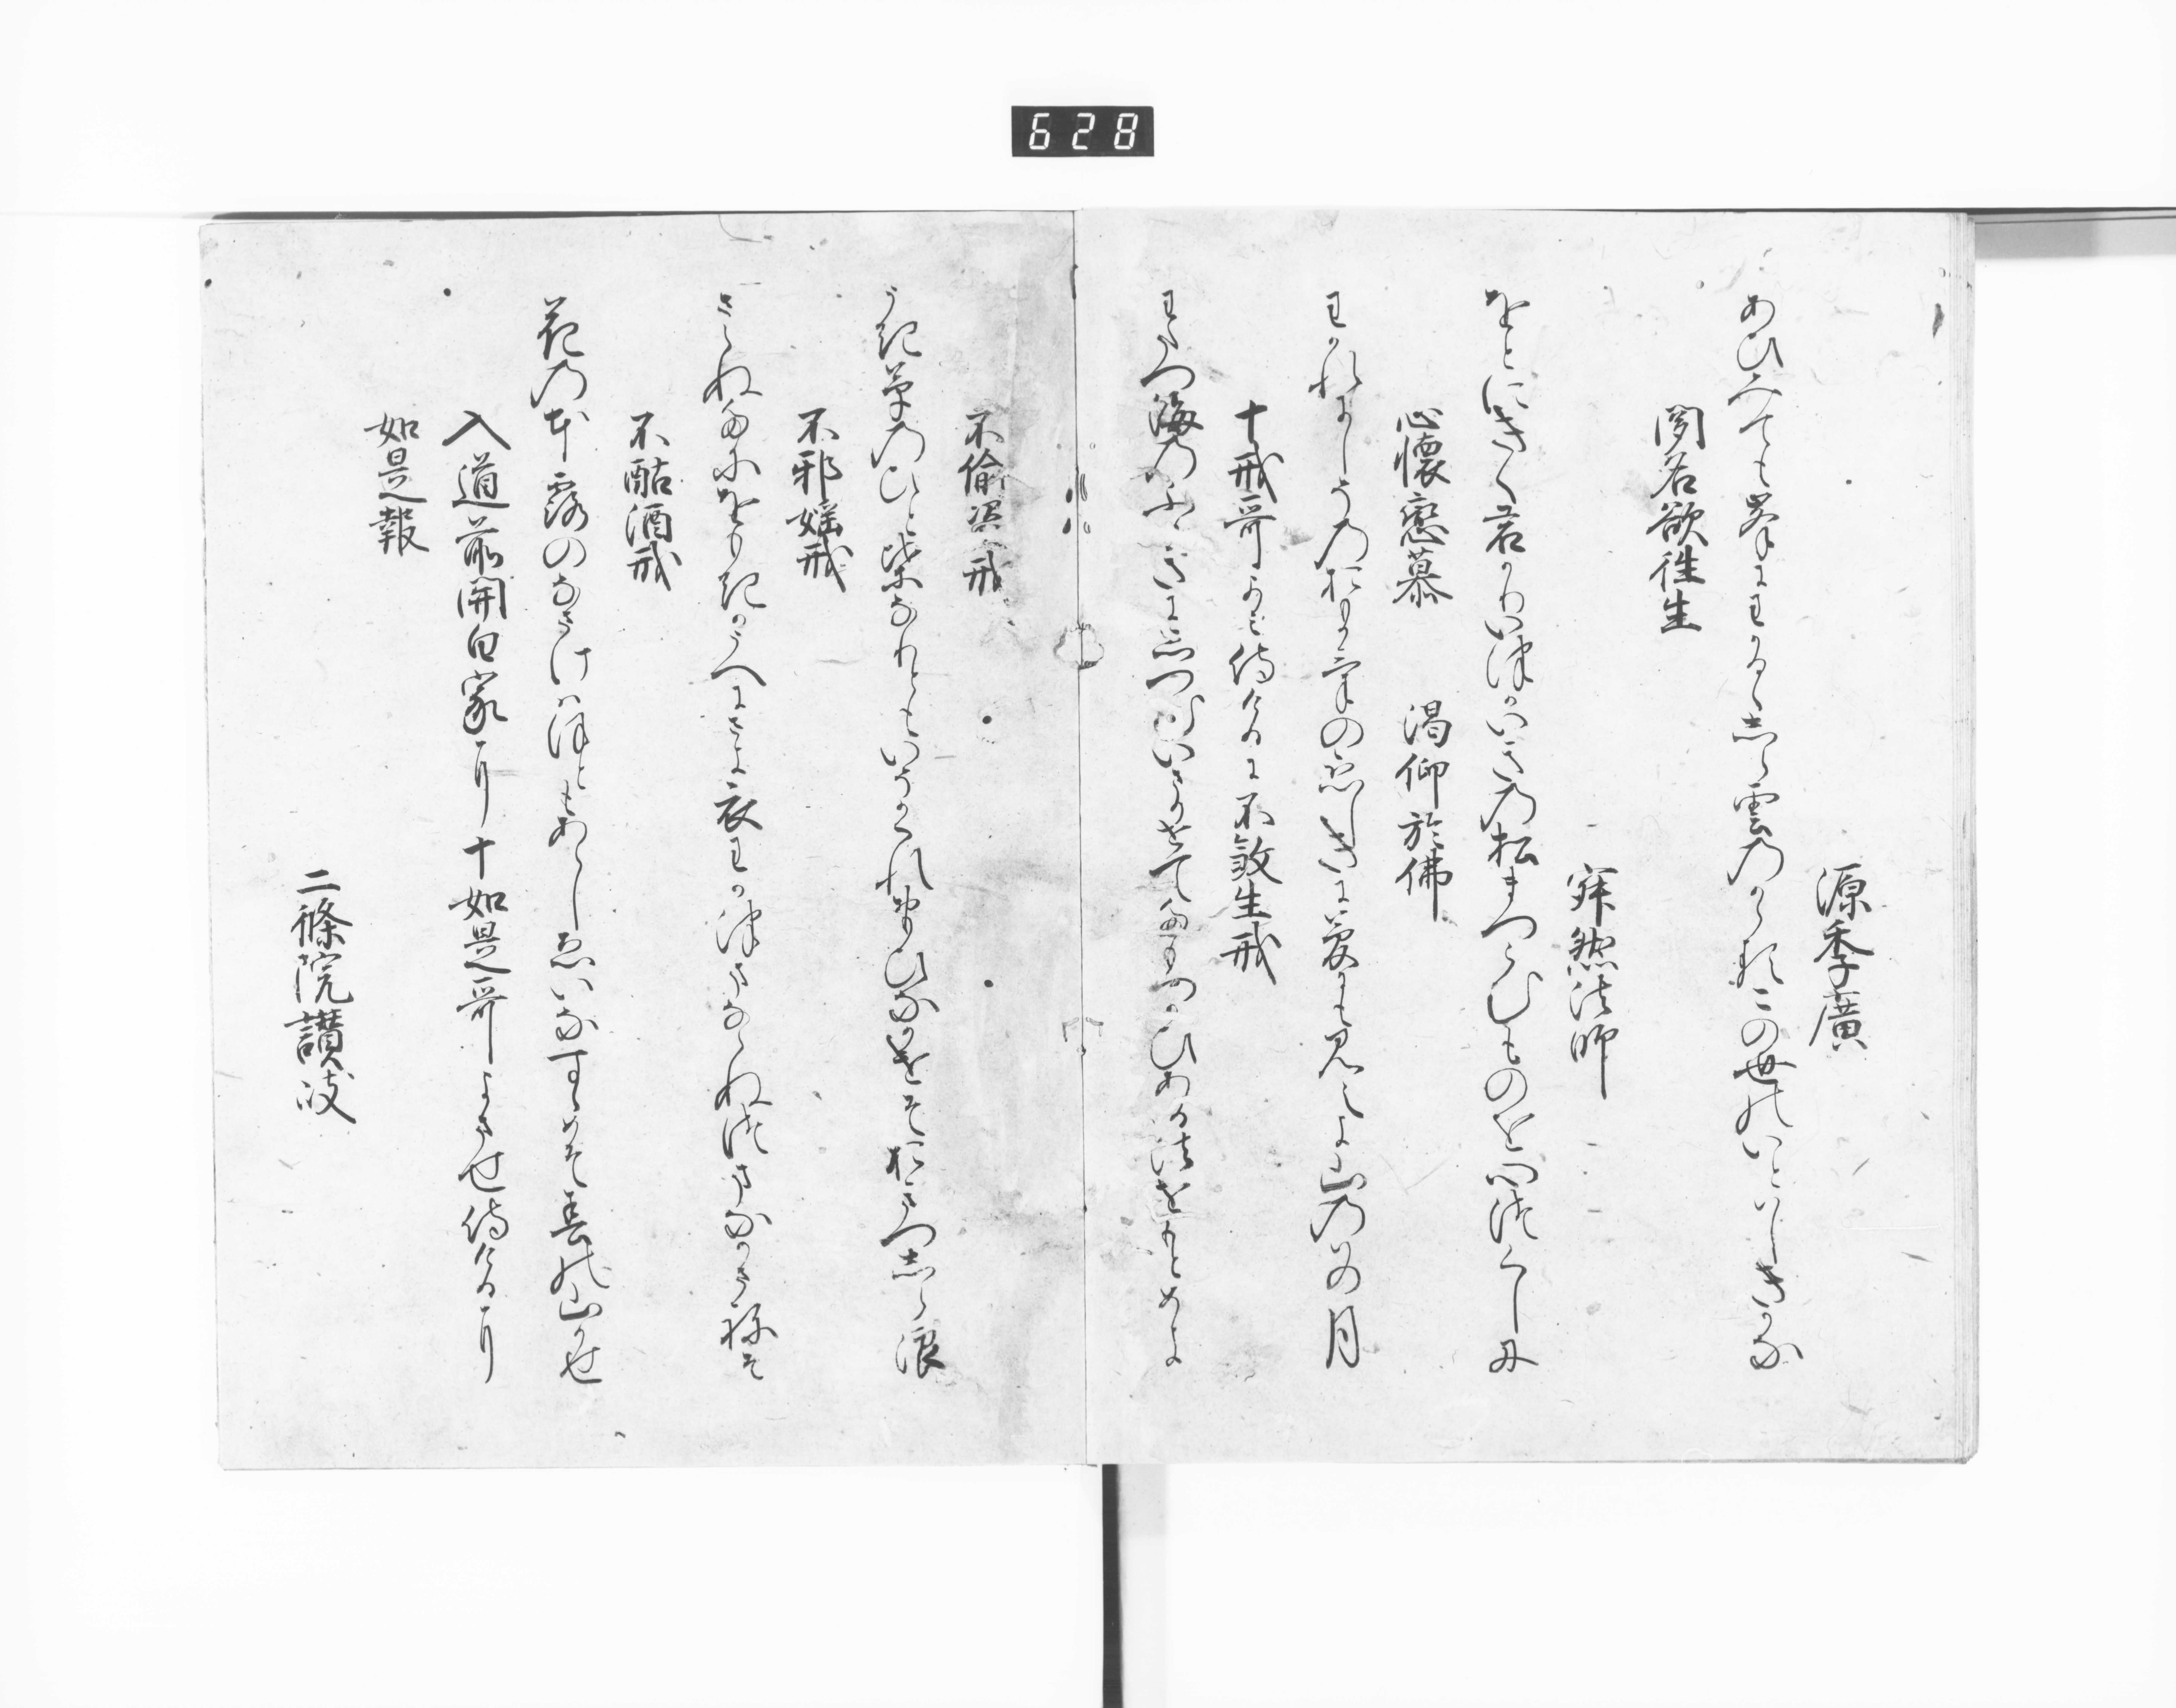 源季廣
あひみても峯にわかるゝしら雲のかゝるこの世のいとはしきかな
聞名欲往生
寂然法師
をとにきく君かりいつかいきの松まつらむものを心つくしに
心懐戀慕　渇仰於佛
わかれにしそのおもかけの恋しきに夢にも見えよ山のはの月
十戒哥よみ侍けるに不殺生戒
わたつ海のふかきにしつむいさりせてたもつかひある法をもとめよ
不偸盗戒
うき草のひと葉なりともいそかくれおもひなかけそおきつしら浪
不邪婬戒
さらぬたにをもきかうへにさよ衣わかつまならぬつまなかさねそ
不酤酒戒
花のもと露のなさけはほともあらしゑひなすゝめそ春の山かせ
入道前関白家に十如是哥よませ侍けるに
如是報
二條院讃岐